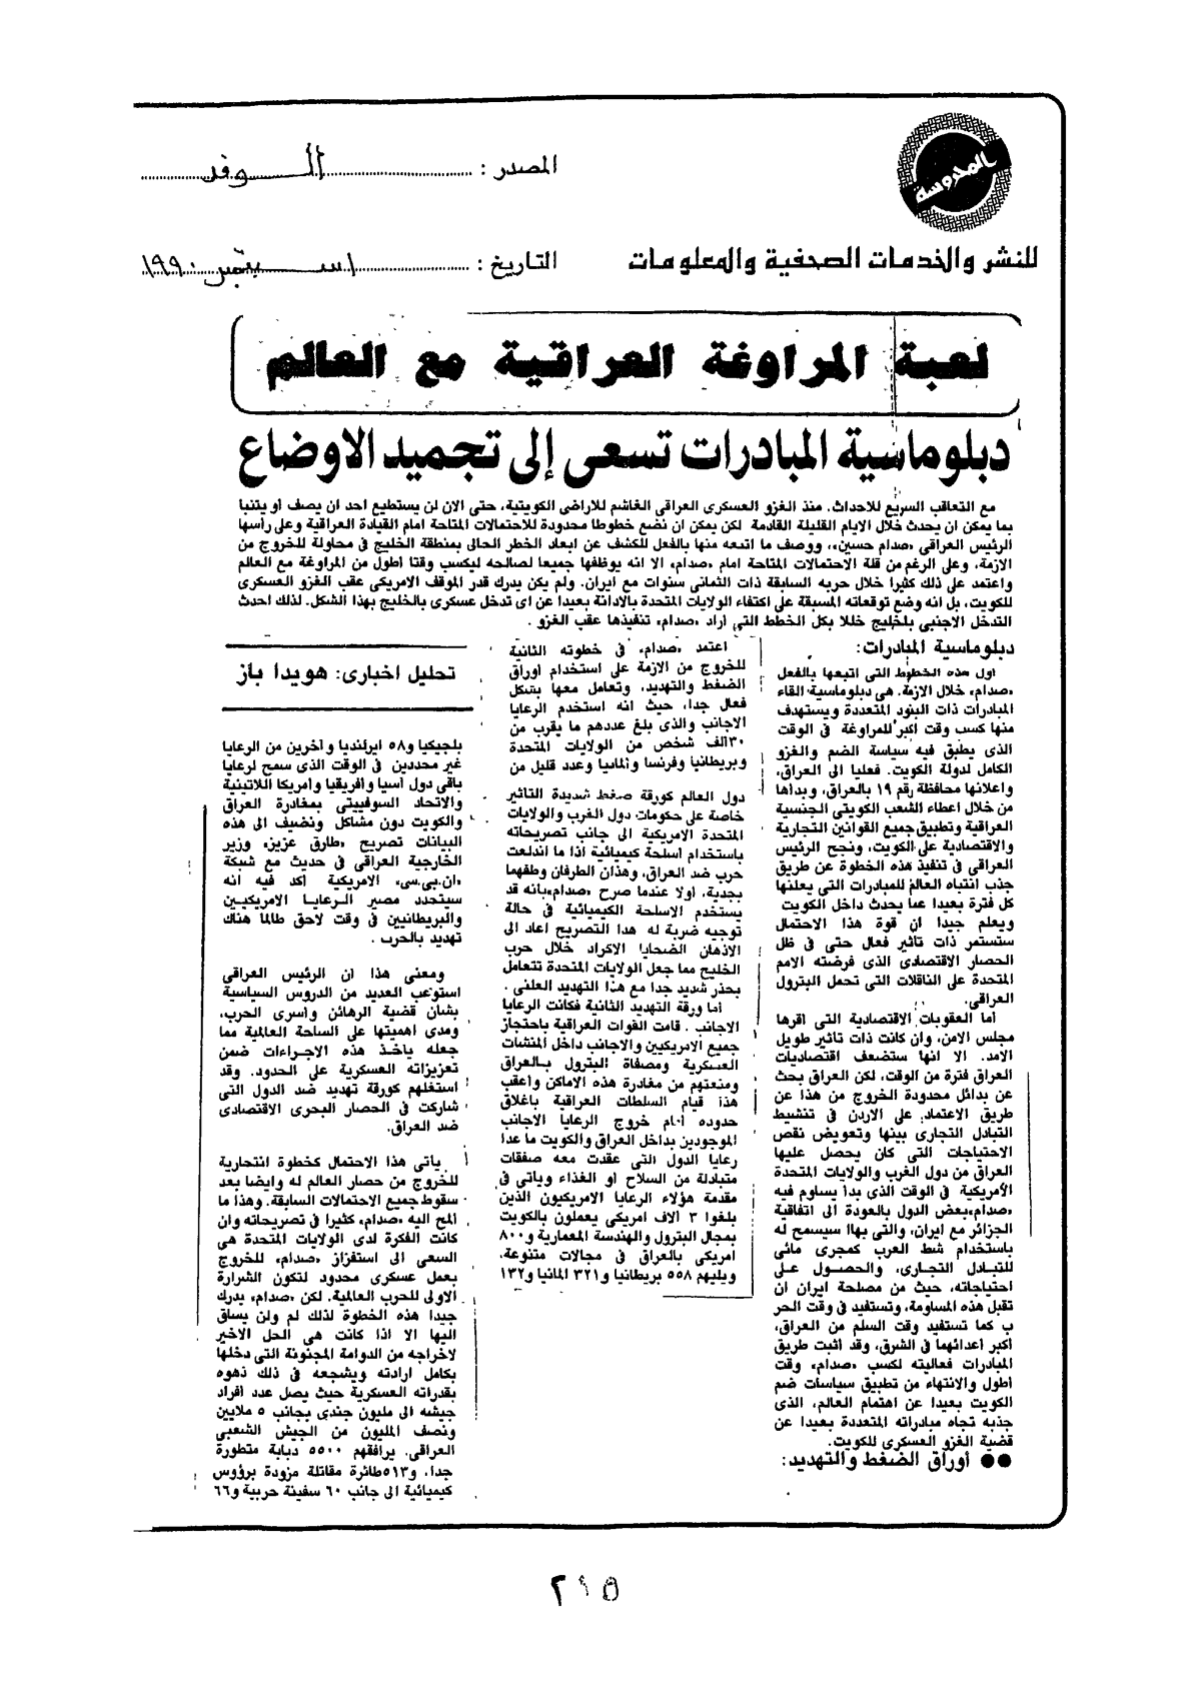 المحروسة
المصدر : الوفد
للنشر والخدمات الصحفية والمعلومات
التاريخ : ١ سبتمبر ١٩٩٠
لعبة المراوغة العراقية مع العالم
دبلوماسية المبادرات تسعى إلى تجميد الاوضاع
مع التعاقب السريع للاحداث. منذ الغزو العسكرى العراقى الغاشم للاراضى الكويتية، حتى الان لن يستطيع احد ان يصف أو يتنبأ
بما يمكن ان يحدث خلال الايام القليلة القادمة لكن يمكن ان نضع خطوطا محدودة للاحتمالات المتاحة امام القيادة العراقية وعلى رأسها
الرئيس العراقى «صدام حسين»، ووصف ما اتبعه منها بالفعل للكشف عن ابعاد الخطر الحالى بمنطقة الخليج فى محاولة للخروج من
الازمة، وعلى الرغم من قلة الاحتمالات المتاحة امام «صدام» الا انه يوظفها جميعا لصالحه ليكسب وقتا أطول من المراوغة مع العالم
واعتمد على ذلك كثيرا خلال حربه السابقة ذات الثمانى سنوات مع ايران. ولم يكن يدرك قدر الموقف الامريكى عقب الغزو العسكرى
للكويت، بل انه وضع توقعاته المسبقة على اكتفاء الولايات المتحدة بالادانة بعيدا عن اى تدخل عسكرى بالخليج بهذا الشكل. لذلك احدث
التدخل الاجنبى بلخليج خللا بكل الخطط التى أراد «صدام» تنفيذها عقب الغزو .
دبلوماسية المبادرات:
اول هذه الخطوط التى اتبعها بالفعل
«صدام» خلال الازمة. هى دبلوماسية القاء
المبادرات ذات البنود المتعددة ويستهدف
منها كسب وقت اكبر للمراوغة فى الوقت
الذى يطبق فيه سياسة الضم والغزو
الكامل لدولة الكويت. فعليا الى العراق،
واعلانها محافظة رقم ١٩ بالعراق، وبدأها
من خلال اعطاء الشعب الكويتى الجنسية
العراقية وتطبيق جميع القوانين التجارية
والاقتصادية على الكويت، ونجح الرئيس
العراقى فى تنفيذ هذه الخطوة عن طريق
جذب انتباه العالم للمبادرات التى يعلنها
كل فترة بعيدا عما يحدث داخل الكويت
ويعلم جيدا ان قوة هذا الاحتمال
ستستمر ذات تاثير فعال حتى فى ظل
الحصار الاقتصادى الذى فرضته الامم
المتحدة على الناقلات التى تحمل البترول
العراقى.
أما العقوبات الاقتصادية التى اقرها
مجلس الامن، وان كانت ذات تاثير طويل
الامد. الا انها ستضعف اقتصاديات
العراق فترة من الوقت، لكن العراق بحث
عن بدائل محدودة الخروج من هذا عن
طريق الاعتماد على الاردن فى تنشيط
التبادل التجارى بينها وتعويض نقص
الاحتياجات التى كان يحصل عليها
العراق من دول الغرب والولايات المتحدة
الأمريكية فى الوقت الذى بدأ يساوم فيه
«صدام» بعض الدول بالعودة الى اتفاقية
الجزائر مع ايران، والتى بهاا سيسمح له
باستخدام شط العرب كمجرى مائى
للتبادل التجارى، والحصول على
احتياجاته، حيث من مصلحة ايران ان
تقبل هذه المساومة، وتستفيد فى وقت الحر
ب كما تستفيد وقت السلم من العراق،
أكبر أعدائهما فى الشرق، وقد اثبت طريق
المبادرات فعاليته لكسب «صدام» وقت
أطول والانتهاء من تطبيق سياسات ضم
الكويت بعيدا عن اهتمام العالم، الذى
جذبه تجاه مبادراته المتعددة بعيدا عن
قضية الغزو العسكرى للكويت.
●● أوراق الضغط والتهديد:
اعتمد «صدام» فى خطوته الثانية
للخروج من الازمة على استخدام أوراق
الضغط والتهديد، وتعامل معها بشكل
فعال جدا، حيث انه استخدم الرعايا
الاجانب والذى بلغ عددهم ما يقرب من
٣٠الف شخص من الولايات المتحدة
وبريطانيا وفرنسا وألمانيا وعدد قليل من
دول العالم كورقة ضغط شديدة التاثير
خاصة على حكومات دول الغرب والولايات
المتحدة الامريكية الى جانب تصريحاته
باستخدام اسلحة كيميائية اذا ما اندلعت
حرب ضد العراق، وهذان الطرفان وظفهما
بجدية، أولا عندما صرح «صدام» بانه قد
يستخدم الاسلحة الكيميائية فى حالة
توجيه ضربة له هذا التصريح اعاد الى
الاذهان الضحايا الاكراد خلال حرب
الخليج مما جعل الولايات المتحدة تتعامل
بحذر شديد جدا مع هذا التهديد العلنى .
أما ورقة التهديد الثانية فكانت الرعايا
الاجانب . قامت القوات العراقية باحتجاز
جميع الامريكيين والاجانب داخل المنشات
العسكرية ومصفاة البترول بالعراق
ومنعتهم من مغادرة هذه الاماكن وأعقب
هذا قيام السلطات العراقية باغلاق
حدوده أمام خروج الرعايا الاجانب
الموجودين بداخل العراق والكويت ما عدا
رعايا الدول التى عقدت معه صفقات
متبادلة من السلاح او الغذاء وياتى فى
مقدمة هؤلاء الرعايا الامريكيون الذين
بلغوا ٣ آلاف امريكى يعملون بالكويت
بمجال البترول والهندسة المعمارية و٨٠٠
امريكى بالعراق فى مجالات متنوعة،
ويليهم ٥٥٨ بريطانيا و٣٢١ المانيا و١٣٢
تحليل اخبارى: هويدا باز
بلجيكيا و٥٨ ايرلنديا وآخرين من الرعايا
غير محددين فى الوقت الذى سمح لرعايا
باقى دول آسيا وأفريقيا وأمريكا اللاتينية
والاتحاد السوفييتى بمغادرة العراق
والكويت دون مشاكل ونضيف الى هذه
البيانات تصريح «طارق عزيز» وزير
الخارجية العراقى فى حديث مع شبكة
«ان.بى.سى» الامريكية أكد فيه انه
سيتحدد مصير الرعايا الامريكيين
والبريطانيين فى وقت لاحق طالما هناك
تهديد بالحرب .
ومعنى هذا ان الرئيس العراقى
استوعب العديد من الدروس السياسية
بشان قضية الرهائن وأسرى الحرب،
ومدى أهميتها على الساحة العالمية مما
جعله ياخذ هذه الاجراءات ضمن
تعزيزاته العسكرية على الحدود. وقد
استغلهم كورقة تهديد ضد الدول التى
شاركت فى الحصار البحرى الاقتصادى
ضد العراق.
ياتى هذا الاحتمال كخطوة انتحارية
للخروج من حصار العالم له وايضا بعد
سقوط جميع الاحتمالات السابقة. وهذا ما
المح اليه «صدام» كثيرا فى تصريحاته وان
كانت الفكرة لدى الولايات المتحدة هى
السعى الى استفزاز «صدام» للخروج
بعمل عسكرى محدود لتكون الشرارة
الاولى للحرب العالمية. لكن «صدام» يدرك
جيدا هذه الخطوة لذلك لم ولن يساق
اليها الا اذا كانت هى الحل الاخير
لاخراجه من الدوامة المجنونة التى دخلها
بكامل ارادته ويشجعه فى ذلك زهوه
بقدراته العسكرية حيث يصل عدد أفراد
جيشه الى مليون جندى بجانب ٥ ملايين
ونصف المليون من الجيش الشعبى
العراقى. يرافقهم ٥٥٠٠ دبابة متطورة
جدا، و٥١٣ طائرة مقاتلة مزودة برؤوس
كيميائية الى جانب ٦٠ سفينة حربية و٦٦
٢١٥